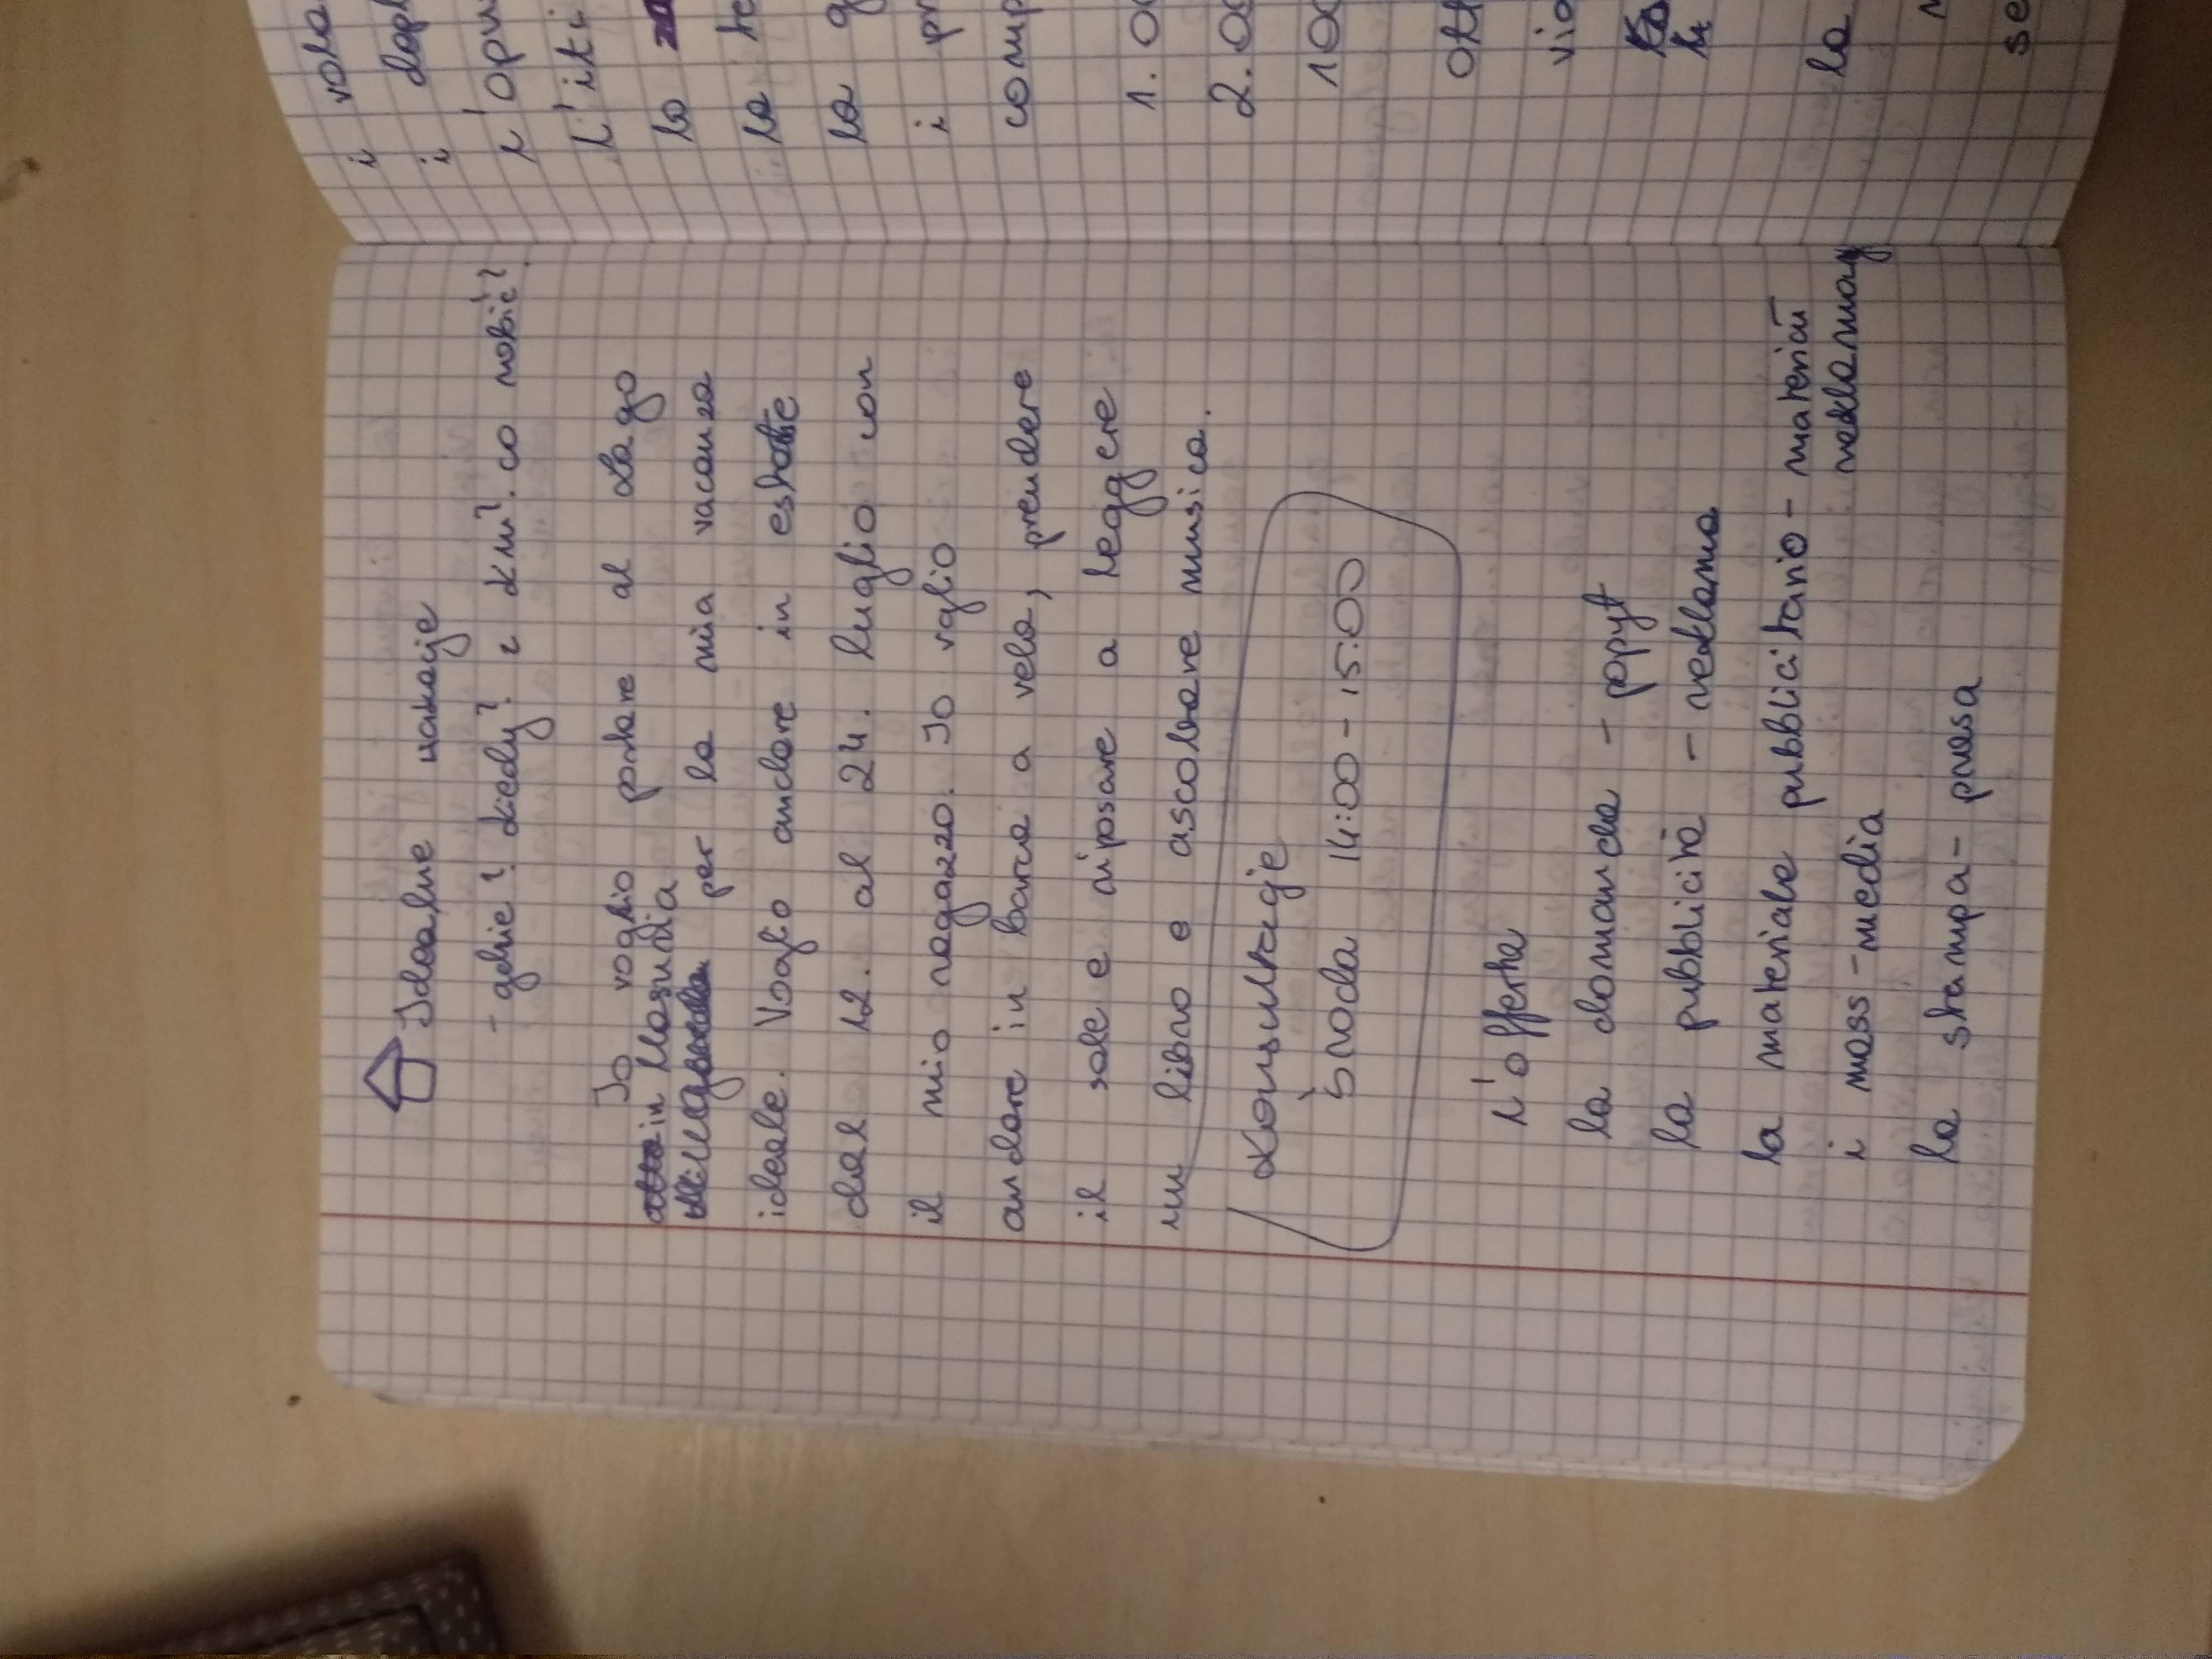 Idealne wakacje
- gdzie? kiedy? z kim? co robić?
Io voglio postare al Lago
in Masuria per la mia vacanza
ideale. Voglio andare in estate
dal 12. al 24. luglio con
il mio ragazzo. Io voglio
andare in barca a vela, prendere
il sole e riposare a leggere
un libro e ascoltare musica.
Konsultacje
środa 14:00 - 15:00
L'offerta
la domanda - popyt
la pubblicità - reklama
la materiale pubblicitario - materiał
reklamowy
i mass-media
la stampa - prasa
i vola
i depl
l'opu
L'iti
la
la te
la g
i pr
comp
1.00
2.00
100
ott
via
la
se